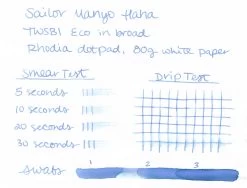 Sailor Manyo Haha
TWSBI Eco in broad
Rhodia dotpad, 80g white paper
Smear Test
Drip Test
5 seconds
10 seconds
20 seconds
30 seconds
swabs
1 2 3